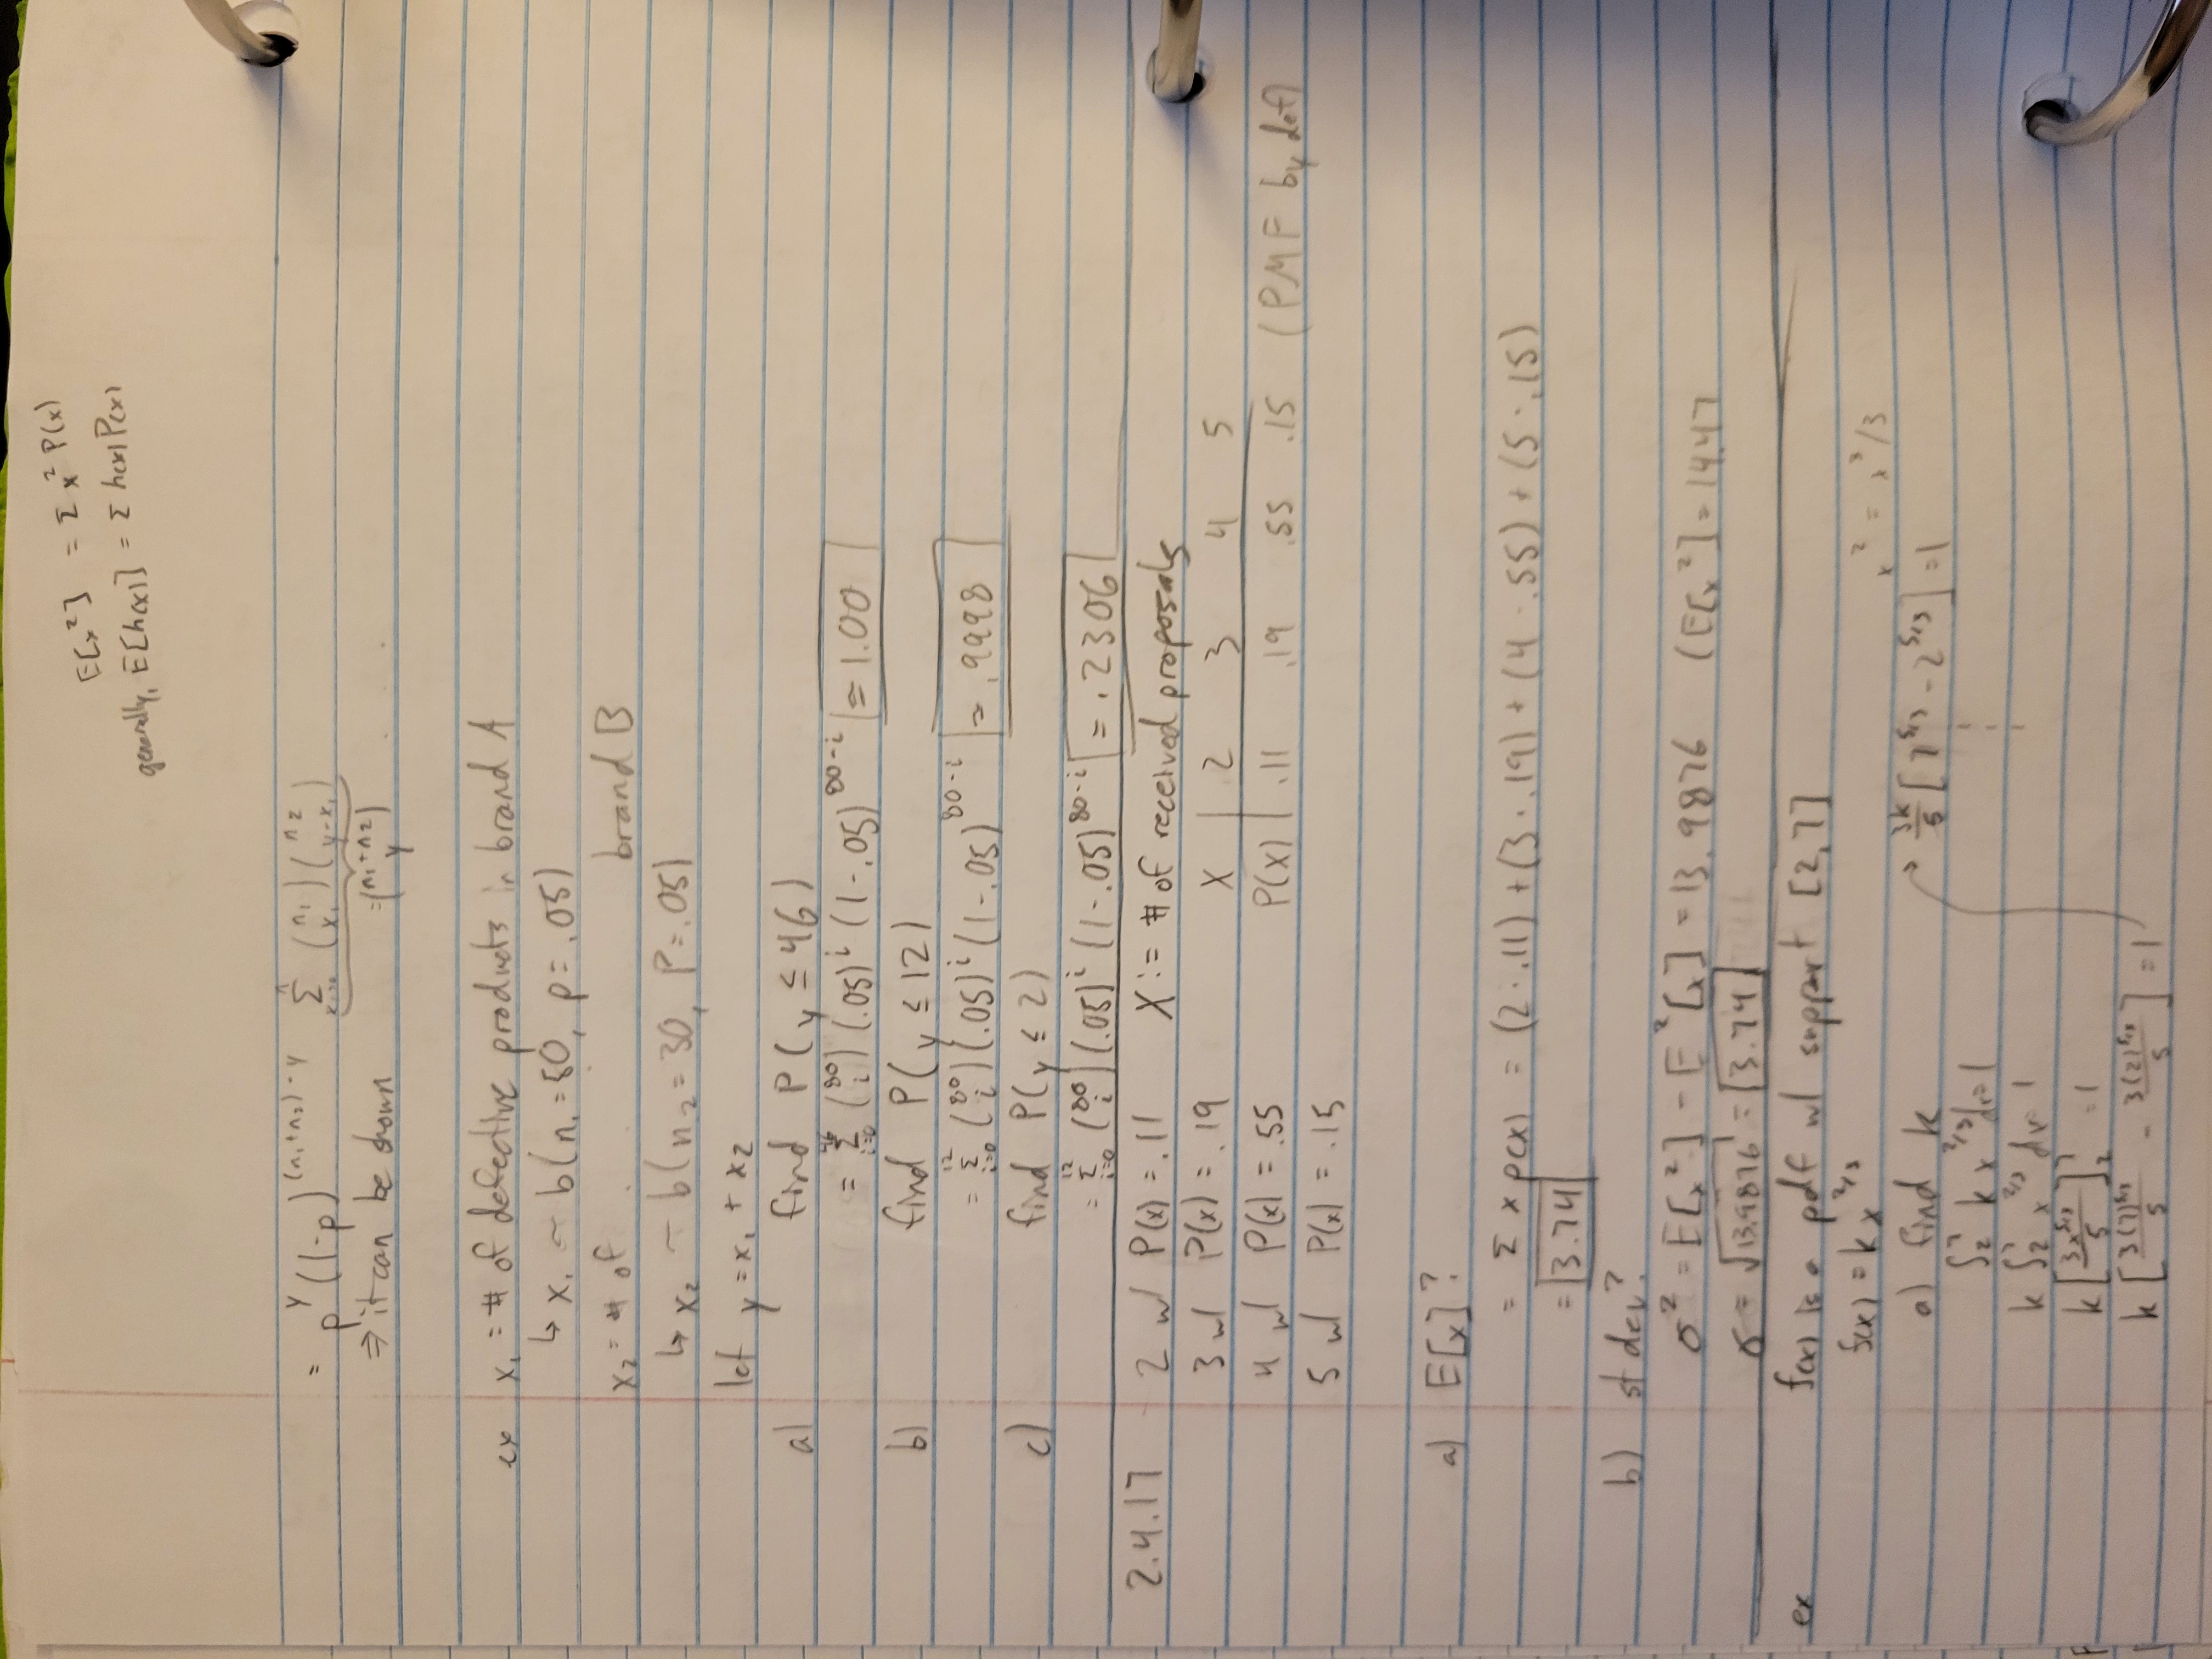 E[x²] = Σ x² P(x)
generally, E[h(x)] = Σ h(x) P(x)
= p^y (1-p)^((n₁+n₂)-y) Σ_(x₁=0)^n (n₁ x₁)(n₂ y-x₁)
⇒ it can be shown = (n₁+n₂ y)
ex x₁ = # of defective products in brand A
↳ x₁ ~ b(n₁=50, p=.05)
x₂ = # of brand B
↳ x₂ ~ b(n₂=30, P=.05)
let y = x₁ + x₂
a) find P(y ≤ 46)
= Σ_(i=0)^46 (80 i) (.05)^i (1-.05)^(80-i) ≈ 1.00
b) find P(y ≤ 12)
= Σ_(i=0)^12 (80 i) (.05)^i (1-.05)^(80-i) ≈ .9998
c) find P(y ≤ 2)
= Σ_(i=0)^12 (80 i) (.05)^i (1-.05)^(80-i) = .2306
2.4.17 2 w/ P(x) = .11 X := # of received proposals
3 w/ P(x) = .19 X | 2 3 4 5
4 w/ P(x) = .55 P(X) | .11 .19 .55 .15 (PMF by def)
5 w/ P(x) = .15
a) E[x]?
= Σ x p(x) = (2·.11) + (3·.19) + (4·.55) + (5·.15)
= 3.74
b) st dev?
σ² = E[x²] - E²[x] = 13.9876 (E[x²] = 14.47
σ = √13.9876 = 3.74
ex f(x) is a pdf w/ support [2,7]
f(x) = k x^(2/3)
x² = x³/3
a) find k
∫₂⁷ k x^(2/3) dx = 1
k ∫₂⁷ x^(2/3) dx = 1
k [3x^(5/3)/5]₂⁷ = 1
k [3(7)^(5/3)/5 - 3(2)^(5/3)/5] = 1
→ 3k/5 [7^(5/3) - 2^(5/3)] = 1